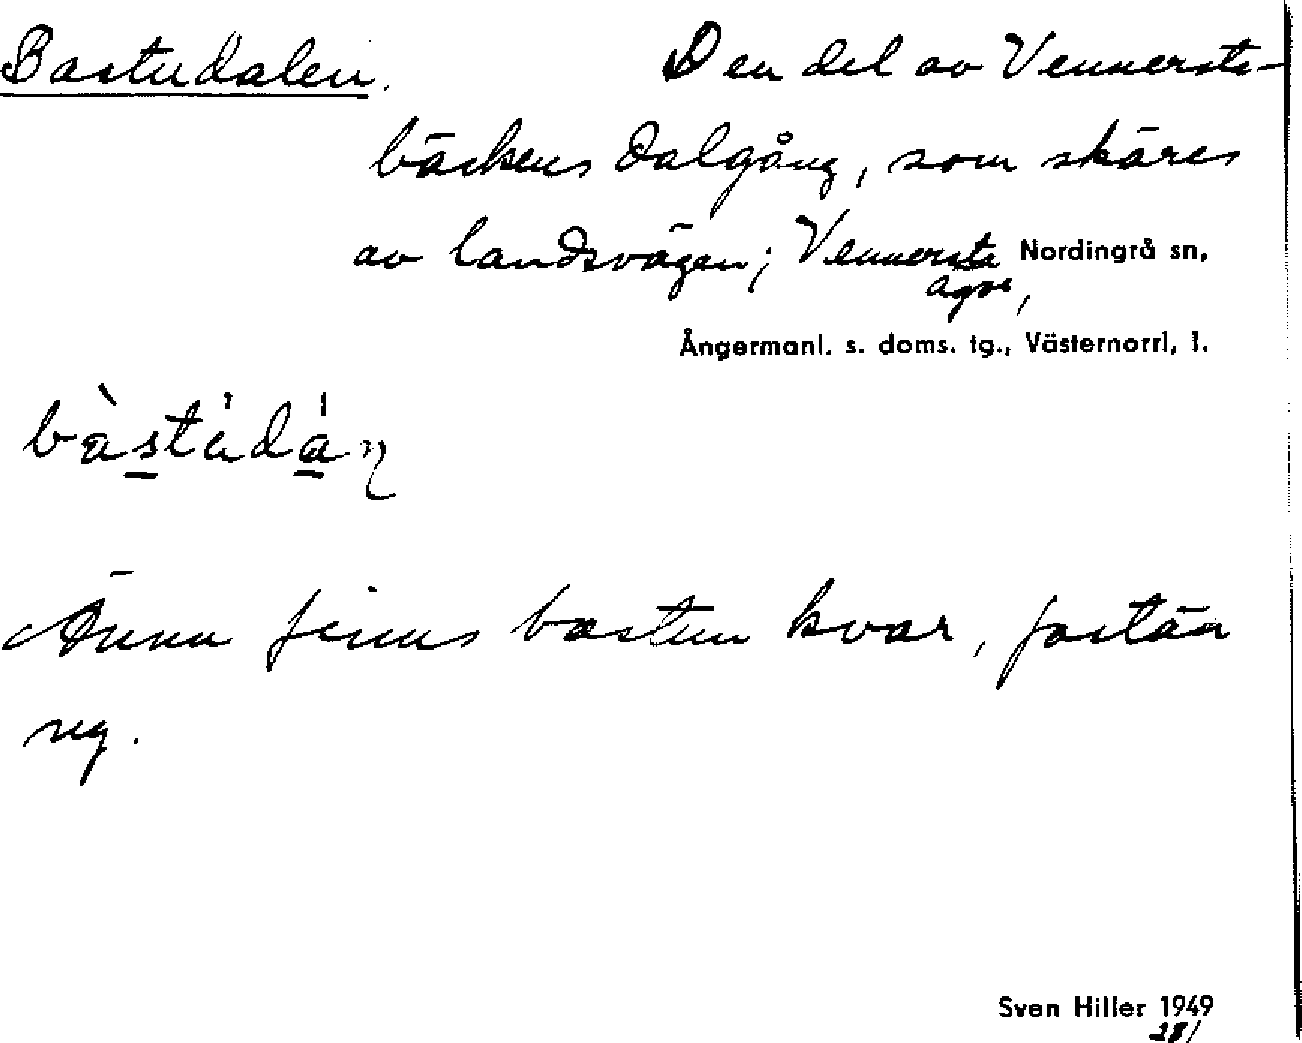 Bastudalen. Den del av Vennersta-
bäckens dalgång, som skäres
av landsvägen; Vennersta Nordingrå sn,
ägor,
Ångermanl. s. doms. tg., Västernorrl. l.
Ännu finns bastun kvar, påstår
sg.
Sven Hiller 1949
281